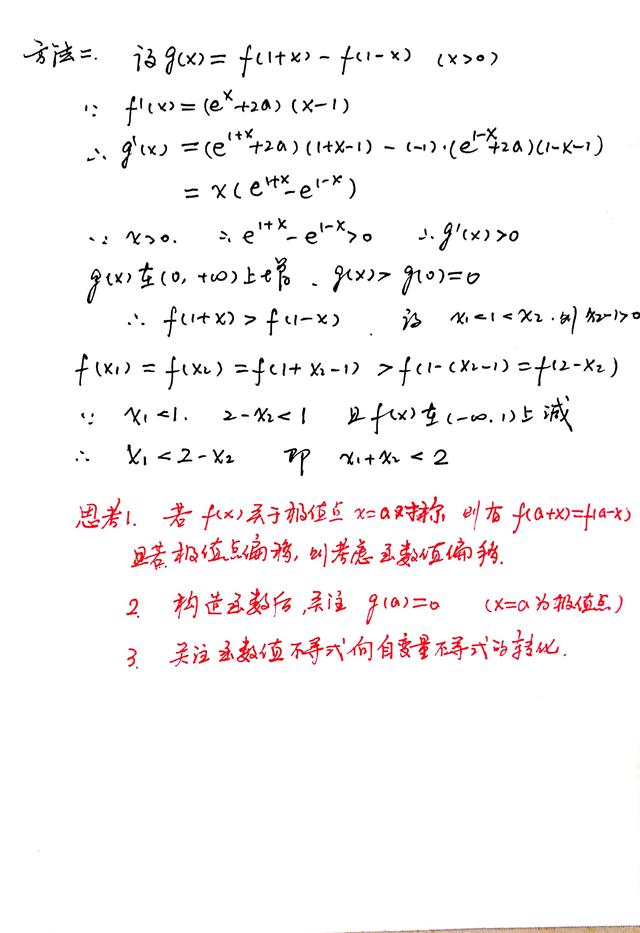 方法二. 设g(x)= f(1+x)-f(1-x) (x>0)
∵ f'(x)=(e^x+2a)(x-1)
∴ g'(x)=(e^{1+x}+2a)(1+x-1)-(-1)·(e^{1-x}+2a)(1-x-1)
=x(e^{1+x}-e^{1-x})
∵ x>0. ∴ e^{1+x}-e^{1-x}>0 ∴ g'(x)>0
g(x)在(0,+∞)上增. g(x)>g(0)=0
∴ f(1+x)>f(1-x) 设 x₁<1<x₂.则x₂-1>0
f(x₁)=f(x₂)=f(1+x₂-1)>f(1-(x₂-1)=f(2-x₂)
∵ x₁<1. 2-x₂<1 且f(x)在(-∞.1)上减
∴ x₁<2-x₂ 即 x₁+x₂<2
思考1. 若f(x)关于极值点x=a对称 则有f(a+x)=f(a-x)
且若极值点偏移,则考虑函数值偏移.
2. 构造函数后,关注 g(a)=0 (x=a为极值点)
3. 关注函数值不等式向自变量不等式的转化.